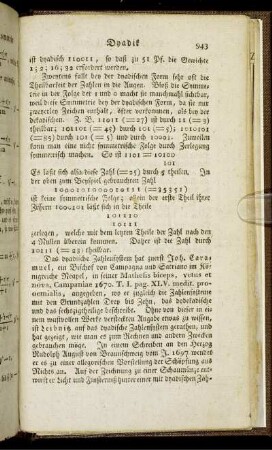 Dyadik 943
ist dyadisch 110011, so daß zu 51 Pf. die Gewichte
1; 2; 16; 32 erfordert werden.
Zweytens fällt bey der dyadischen Form sehr oft die
Theilbarkeit der Zahlen in die Augen. Bloß die Symme-
trie in der Folge der 1 und 0 macht sie manchmahl sichtbar,
weil diese Symmetrie bey der dyadischen Form, da sie nur
zweyerley Zeichen enthält, öfter vorkommt, als bey der
dekadischen. Z. B. 11011 (=27) ist durch 11 (=3)
theilbar; 101101 (=45) durch 101 (=5); 1010101
(=85) durch 101 (=5) und durch 10001. Zuweilen
kann man die Folge der Zahlen durch Zerlegung
symmetrisch machen. So ist 11001 = 10100
101
Es läßt sich also diese Zahl (=25) durch 5 theilen. In
der oben zum Beyspiel gebrauchten Zahl
ist keine symmetrische Folge; allein der erste Theil ihrer
Ziffern läßt sich in die Theile
101110
10111
zerlegen, welche mit dem letzten Theile der Zahl nach den
4 Nullen überein kommen. Daher ist die Zahl durch
10111 (=23) theilbar.
Das dyadische Zahlensystem hat zuerst Joh. Cara-
muel, ein Bischof von Campanien und Satriano im Kö-
nigreiche Neapel, in seiner Mathesis biceps, vetus et
nova, Campaniae 1670. T. I. pag. XLV. medit. prooe-
mialis, angegeben, wo er zugleich die Zahlensysteme
mit den Grundzahlen Drey bis Zehn, das dodekadische
und das sechzigtheilige beschreibt. Ohne von dieser in ei-
nem weitläuftigen Werke versteckten Angabe etwas zu wissen,
ist Leibnitz auf das dyadische Zahlensystem gerathen, und hat
gezeigt, wie man es auch noch zu einem und andern Zwecken
gebrauchen möge. In einem Schreiben an den Herzog
Rudolph August von Braunschweig vom J. 1697 wendet
er es zu einer allegorischen Vorstellung der Schöpfung aus
Nichts an. Auf der Zeichnung zu einer Schaumünze ent-
wirft er Licht und Finsterniß unter einer mit dyadischen Zah-